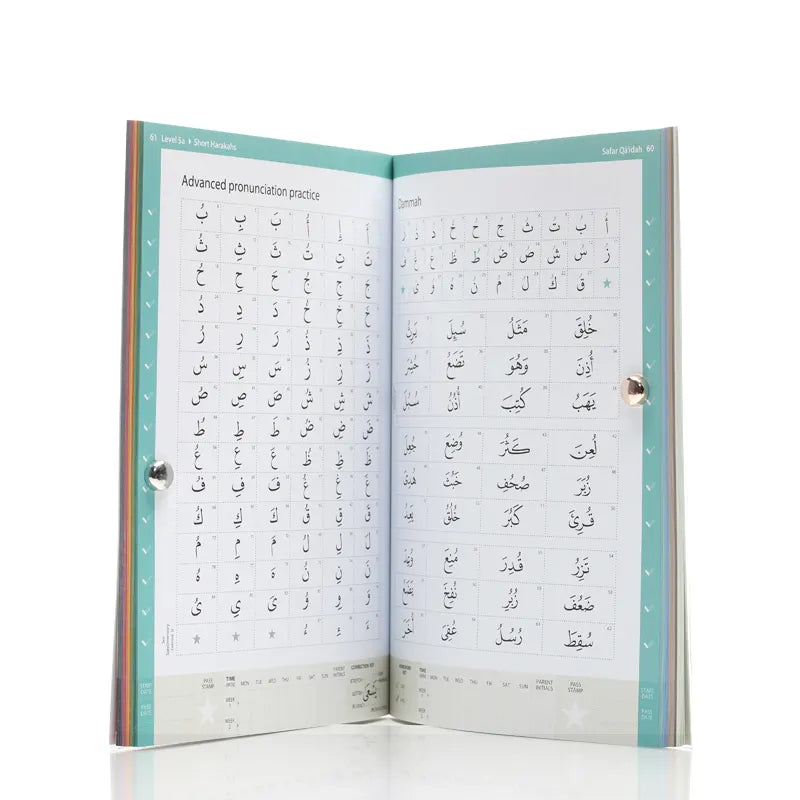 Safar Qā'idah 60
Dammah
أُ بُ تُ ثُ جُ حُ خُ دُ ذُ رُ
زُ سُ شُ صُ ضُ طُ ظُ عُ غُ فُ
قُ كُ لُ مُ نُ هُ وُ ىُ
خُلِقَ مَثَلُ سُبِلَ يَزِنُ
أُذِنَ وَهُوَ تَضَعُ حُشِرَ
يَهَبُ كُتِبَ أُذُنُ سُبُلَ
لُعِنَ كَثُرَ وُضِعَ جُعِلَ
زُبَرَ صُحُفِ خَبُثَ هُدِىَ
قُرِئَ كَبُرَ خُلُقُ يَعِدُ
تَزِرُ قُدِرَ مُنِعَ وُعِدَ
ضَعُفَ زُبُرِ نُفِخَ يَضَعُ
سُقِطَ رُسُلُ عُفِىَ أُخَرَ
TIME MON TUE WED THU FRI SAT SUN PARENT INITIALS PASS STAMP
WEEK 1
WEEK 2
START DATE
PASS DATE
61 Level 5a Short Harakahs
Advanced pronunciation practice
أَ إِ أُ بَ بِ بُ
تَ تِ تُ ثَ ثِ ثُ
جَ جِ جُ حَ حِ حُ
خَ خِ خُ دَ دِ دُ
ذَ ذِ ذُ رَ رِ رُ
زَ زِ زُ سَ سِ سُ
شَ شِ شُ صَ صِ صُ
ضَ ضِ ضُ طَ طِ طُ
ظَ ظِ ظُ عَ عِ عُ
غَ غِ غُ فَ فِ فُ
قَ قِ قُ كَ كِ كُ
لَ لِ لُ مَ مِ مُ
نَ نِ نُ هَ هِ هُ
وَ وِ وُ ىَ ىِ ىُ
ءَ ءِ ءُ
PASS STAMP TIME MON TUE WED THU FRI SAT SUN PARENT INITIALS CORRECTION KEY
WEEK 1
WEEK 2
START DATE
PASS DATE